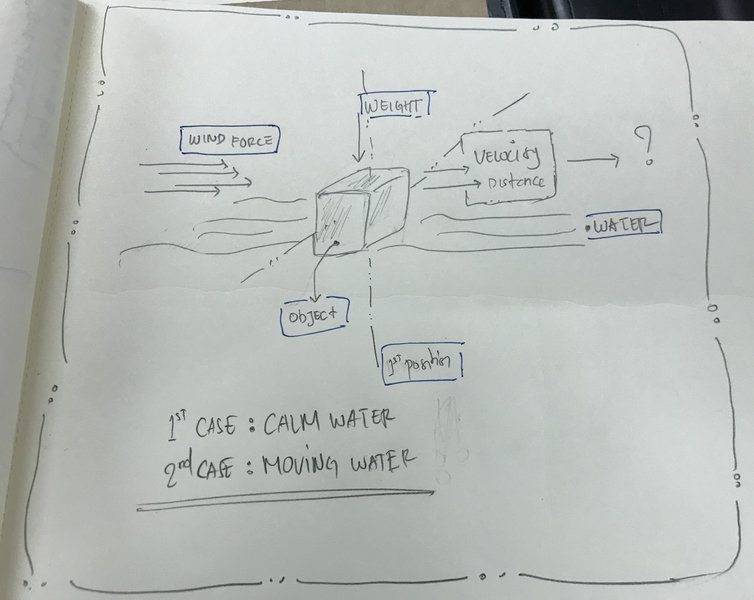 WEIGHT
WIND FORCE
VELOCITY
DISTANCE
?
WATER
OBJECT
1ST POSITION
1ST CASE : CALM WATER
2nd CASE : MOVING WATER